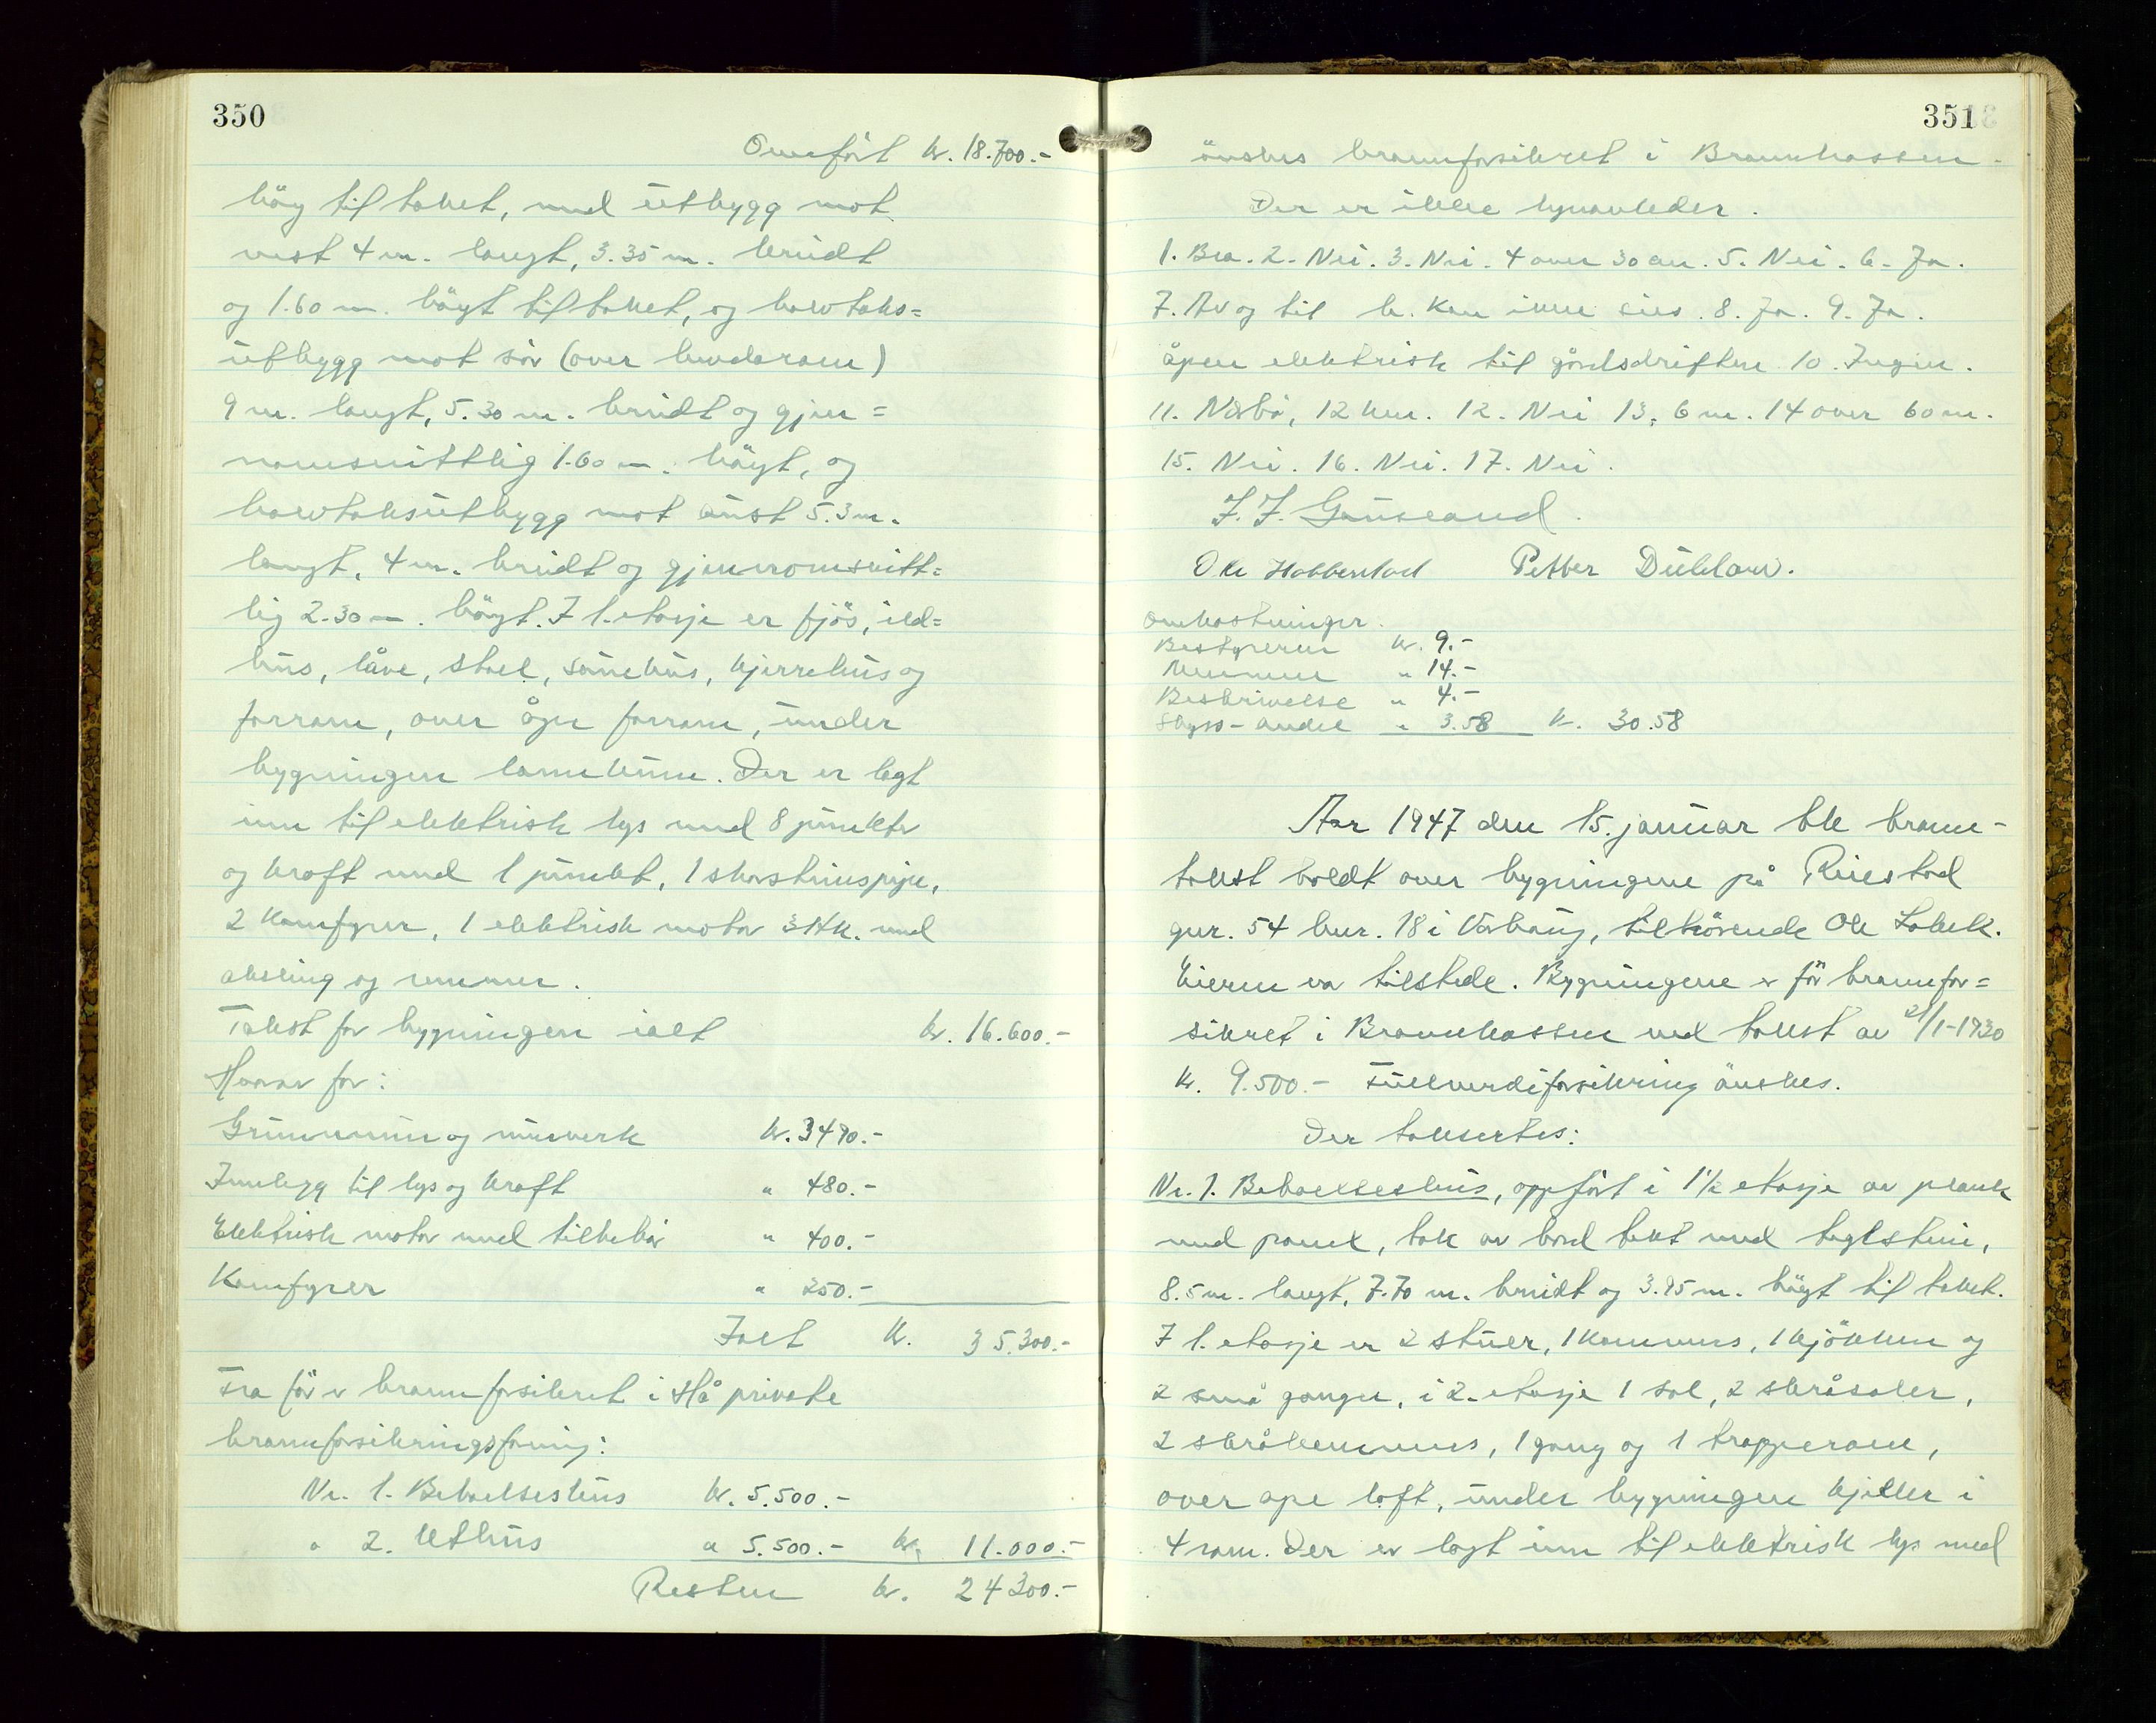 350
Omført kr. 18.700.-
høy til taket, med utbygg mot
vest 4 m. langt, 3.35 m. breidt
og 1.60 m. høyt til taket, og halvtaks=
utbygg mot sør (over hevderom)
9 m. langt, 5.30 m. breidt og gjen=
nomsnittlig 1.60 m. høyt, og
halvtaksutbygg mot aust 5.3 m.
langt, 4 m. breidt og gjennomsnitt=
lig 2.30 m. høyt. I 1. etasje er fjøs, ild=
hus, låve, stall, sauehus, kjerrehus og
forrom, over åpen forrom, under
bygningen landkum. Der er lagt
inn til elektrisk lys med 8 punkter
og kraft med 1 punkt, 1 skorsteinspipe,
2 komfyrer, 1 elektrisk motor 3 Hk. med
aksling og remmer.
Takst for bygningen ialt kr. 16.600.-
Herav for:
Grunnmur og murverk kr. 3490.-
Innlegg til lys og kraft " 480.-
Elektrisk motor med tilbehør " 400.-
Komfyrer " 250.-
Ialt kr. 35.300.-
Fra før er brannforsikret i Hå private
brannforsikringsforening:
Nr. 1. Beboelseshus kr. 5.500.-
" 2. Uthus " 5.500.- kr. 11.000.-
Resten kr. 24300.-
351
ønskes brannforsikret i Brannkassen.
Der er ikke lynavleder.
1. Bra. 2. Nei. 3. Nei. 4 over 30 m. 5. Nei. 6. Ja.
7. Av og til h. Kan ikke sies. 8. Ja. 9. Ja.
åpen elektrisk til gårdsdriften 10. Ingen.
11. Nærbø, 12 km. 12. Nei 13. 6 m. 14 over 60 m.
15. Nei. 16. Nei. 17. Nei.
J. J. Grøseland.
Ole Hobberstad Petter Dubland.
Omkostninger.
Bestyreren kr. 9.-
Mennene " 14.-
Beskrivelse " 4.-
Skyss-andel " 3.58 kr. 30.58
Aar 1947 den 15. januar ble brann-
takst holdt over bygningene på Reiestad
gnr. 54 bnr. 18 i Varhaug, tilhørende Ole Lakek.
Eieren var tilstede. Bygningene er før brannfor=
sikret i Brannkassen ved takst av 21/1-1930
kr. 9.500.- Fullverdiforsikring ønskes.
Der taksertes:
Nr. 1. Beboelseshus, oppført i 1½ etasje av plank
med panel, tak av bord tekt med teglstein,
8.5 m. langt, 7.70 m. breidt og 3.95 m. høyt til taket.
I 1. etasje er 2 stuer, 1 kammers, 1 kjøkken og
2 små ganger, i 2. etasje 1 sal, 2 skråsaler,
2 skråkammers, 1 gang og 1 trapperom,
over ope loft, under bygningen kjeller i
4 rom. Der er lagt inn til elektrisk lys med